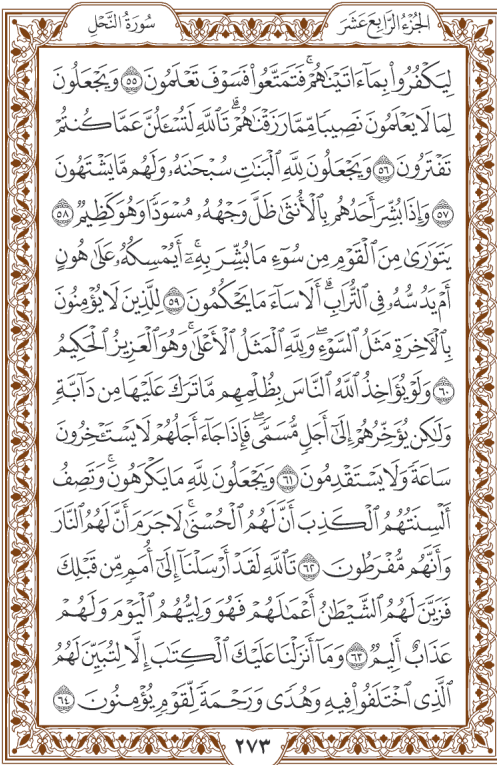 سُورَةُ النَّحْلِ الجُزْءُ الرَّابِعَ عَشَرَ
لِيَكۡفُرُواْ بِمَآ ءَاتَيۡنَٰهُمۡۚ فَتَمَتَّعُواْ فَسَوۡفَ تَعۡلَمُونَ ٥٥ وَيَجۡعَلُونَ
لِمَا لَا يَعۡلَمُونَ نَصِيبٗا مِّمَّا رَزَقۡنَٰهُمۡۗ تَٱللَّهِ لَتُسۡـَٔلُنَّ عَمَّا كُنتُمۡ
تَفۡتَرُونَ ٥٦ وَيَجۡعَلُونَ لِلَّهِ ٱلۡبَنَٰتِ سُبۡحَٰنَهُۥ وَلَهُم مَّا يَشۡتَهُونَ
٥٧ وَإِذَا بُشِّرَ أَحَدُهُم بِٱلۡأُنثَىٰ ظَلَّ وَجۡهُهُۥ مُسۡوَدّٗا وَهُوَ كَظِيمٞ ٥٨
يَتَوَٰرَىٰ مِنَ ٱلۡقَوۡمِ مِن سُوٓءِ مَا بُشِّرَ بِهِۦٓۚ أَيُمۡسِكُهُۥ عَلَىٰ هُونٍ
أَمۡ يَدُسُّهُۥ فِي ٱلتُّرَابِۗ أَلَا سَآءَ مَا يَحۡكُمُونَ ٥٩ لِلَّذِينَ لَا يُؤۡمِنُونَ
بِٱلۡأٓخِرَةِ مَثَلُ ٱلسَّوۡءِۖ وَلِلَّهِ ٱلۡمَثَلُ ٱلۡأَعۡلَىٰۚ وَهُوَ ٱلۡعَزِيزُ ٱلۡحَكِيمُ
٦٠ وَلَوۡ يُؤَاخِذُ ٱللَّهُ ٱلنَّاسَ بِظُلۡمِهِم مَّا تَرَكَ عَلَيۡهَا مِن دَآبَّةٖ
وَلَٰكِن يُؤَخِّرُهُمۡ إِلَىٰٓ أَجَلٖ مُّسَمّٗىۖ فَإِذَا جَآءَ أَجَلُهُمۡ لَا يَسۡتَـٔۡخِرُونَ
سَاعَةٗ وَلَا يَسۡتَقۡدِمُونَ ٦١ وَيَجۡعَلُونَ لِلَّهِ مَا يَكۡرَهُونَۚ وَتَصِفُ
أَلۡسِنَتُهُمُ ٱلۡكَذِبَ أَنَّ لَهُمُ ٱلۡحُسۡنَىٰۚ لَا جَرَمَ أَنَّ لَهُمُ ٱلنَّارَ
وَأَنَّهُم مُّفۡرَطُونَ ٦٢ تَٱللَّهِ لَقَدۡ أَرۡسَلۡنَآ إِلَىٰٓ أُمَمٖ مِّن قَبۡلِكَ
فَزَيَّنَ لَهُمُ ٱلشَّيۡطَٰنُ أَعۡمَٰلَهُمۡ فَهُوَ وَلِيُّهُمُ ٱلۡيَوۡمَ وَلَهُمۡ
عَذَابٌ أَلِيمٞ ٦٣ وَمَآ أَنزَلۡنَا عَلَيۡكَ ٱلۡكِتَٰبَ إِلَّا لِتُبَيِّنَ لَهُمُ
ٱلَّذِي ٱخۡتَلَفُواْ فِيهِ وَهُدٗى وَرَحۡمَةٗ لِّقَوۡمٖ يُؤۡمِنُونَ ٦٤
٢٧٣